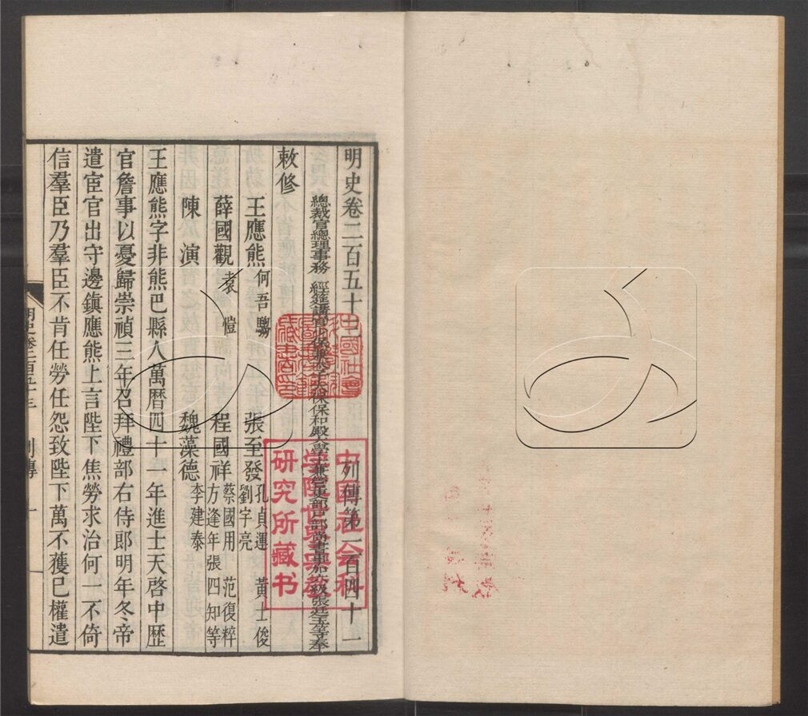 明史卷二百五十三 列傳第一百四十一
總裁官總理事務 經筵講官少保兼太子太保保和殿大學士兼管吏部戶部尚書事加六級張廷玉等奉
敕修
王應熊 何吾騶 張至發 孔貞運 黃士俊 劉宇亮
薛國觀 袁愷 程國祥 蔡國用 范復粹 方逢年 張四知等
陳演 魏藻德 李建泰
王應熊字非熊巴縣人萬曆四十一年進士天啓中歷
官詹事以憂歸崇禎三年召拜禮部右侍郎明年冬帝
遣宦官出守邊鎮應熊上言陛下焦勞求治何一不倚
信羣臣乃羣臣不肯任勞任怨致陛下萬不獲已權遣
明史卷二百五十三 列傳 一
中國社會科
學院世界宗教
研究所藏书